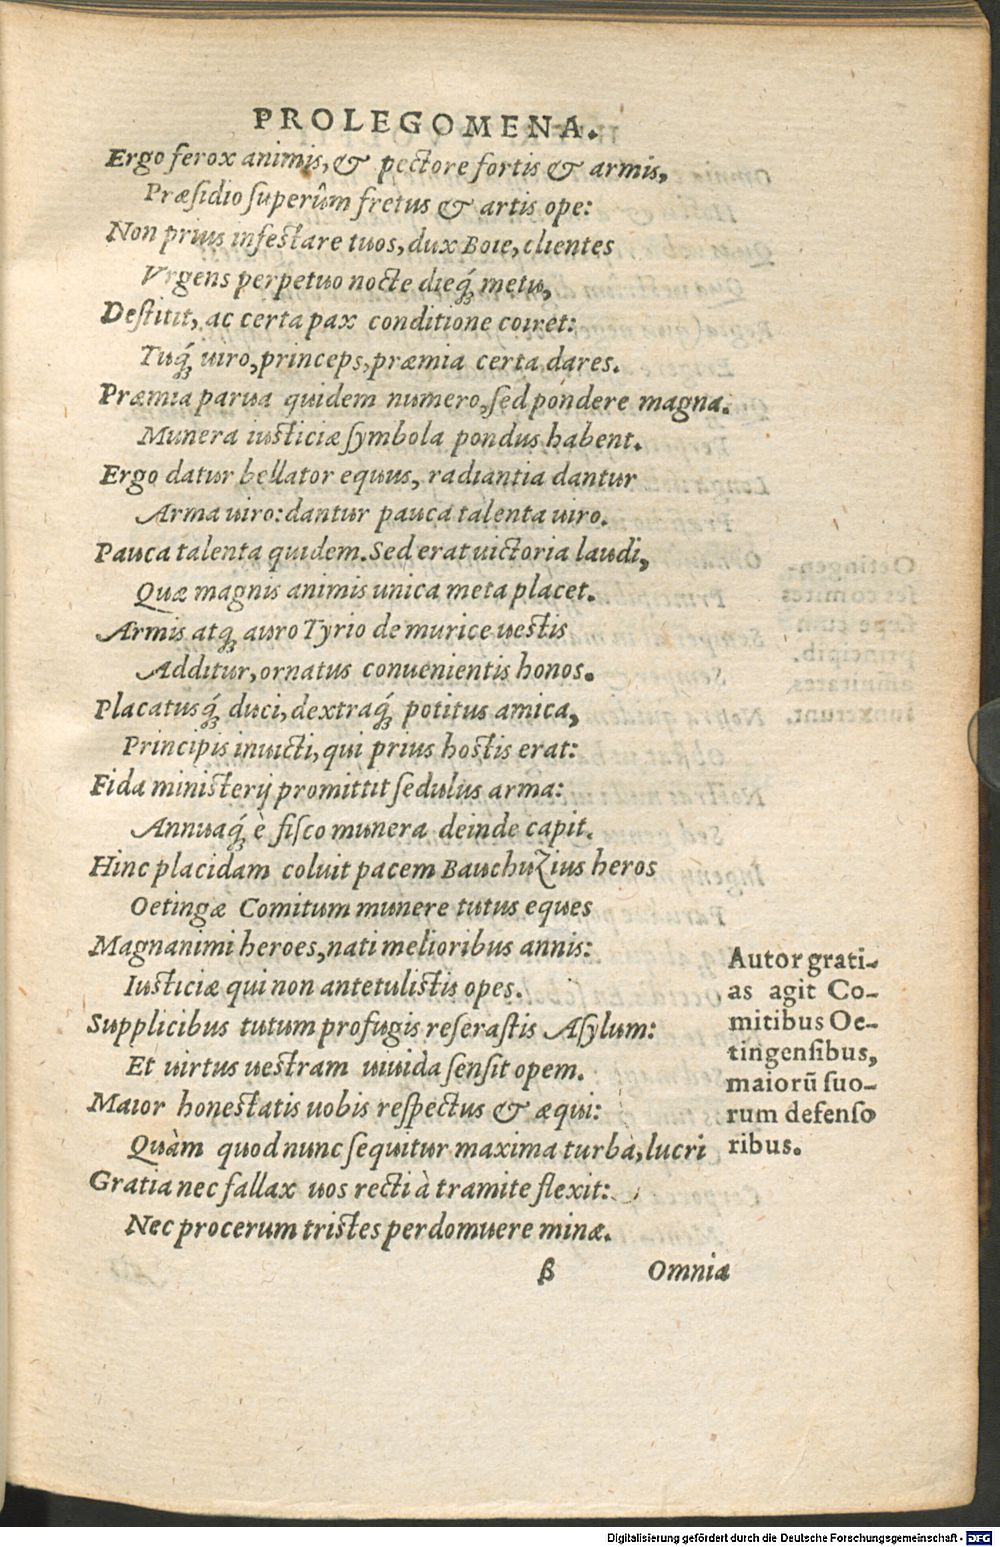 PROLEGOMENA.
Ergo ferox animis, & pectore fortis & armis,
Præsidio superûm fretus & artis ope:
Non prius infestare tuos, dux Boie, clientes
Vrgens perpetuo nocte dieq́; metu,
Destitit, ac certa pax conditione coiret:
Tuq́; uiro, princeps, præmia certa dares.
Præmia parua quidem numero, sed pondere magna.
Munera iusticiæ symbola pondus habent.
Ergo datur bellator equus, radiantia dantur
Arma uiro: dantur pauca talenta uiro.
Pauca talenta quidem. Sed erat uictoria laudi,
Quæ magnis animis unica meta placet.
Armis atq; auro Tyrio de murice uestis
Additur, ornatus conuenientis honos.
Placatusq́; duci, dextraq́; potitus amica,
Principis inuicti, qui prius hostis erat:
Fida ministerij promittit sedulus arma:
Annuaq́; è fisco munera deinde capit.
Hinc placidam coluit pacem Bauchuzius heros
Oetingæ Comitum munere tutus eques
Magnanimi heroes, nati melioribus annis:
Iusticiæ qui non antetulistis opes.
Supplicibus tutum profugis reserastis Asylum:
Et uirtus uestram uiuida sensit opem.
Maior honestatis uobis respectus & æqui:
Quàm quod nunc sequitur maxima turba, lucri
Gratia nec fallax uos recti à tramite flexit:
Nec procerum tristes perdomuere minæ.
Autor grati-
as agit Co-
mitibus Oe-
tingensibus,
maiorũ suo-
rum defenso
ribus.
β Omniæ
Digitalisierung gefördert durch die Deutsche Forschungsgemeinschaft - DFG